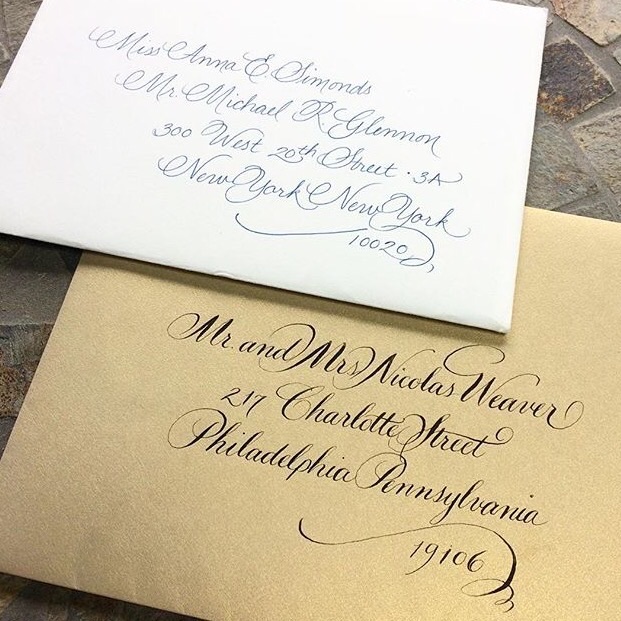 Miss Anna E. Simonds
Mr. Michael R. Glennon
300 West 20th Street · 3A
New York New York
10020
Mr. and Mrs Nicolas Weaver
217 Charlotte Street
Philadelphia Pennsylvania
19106